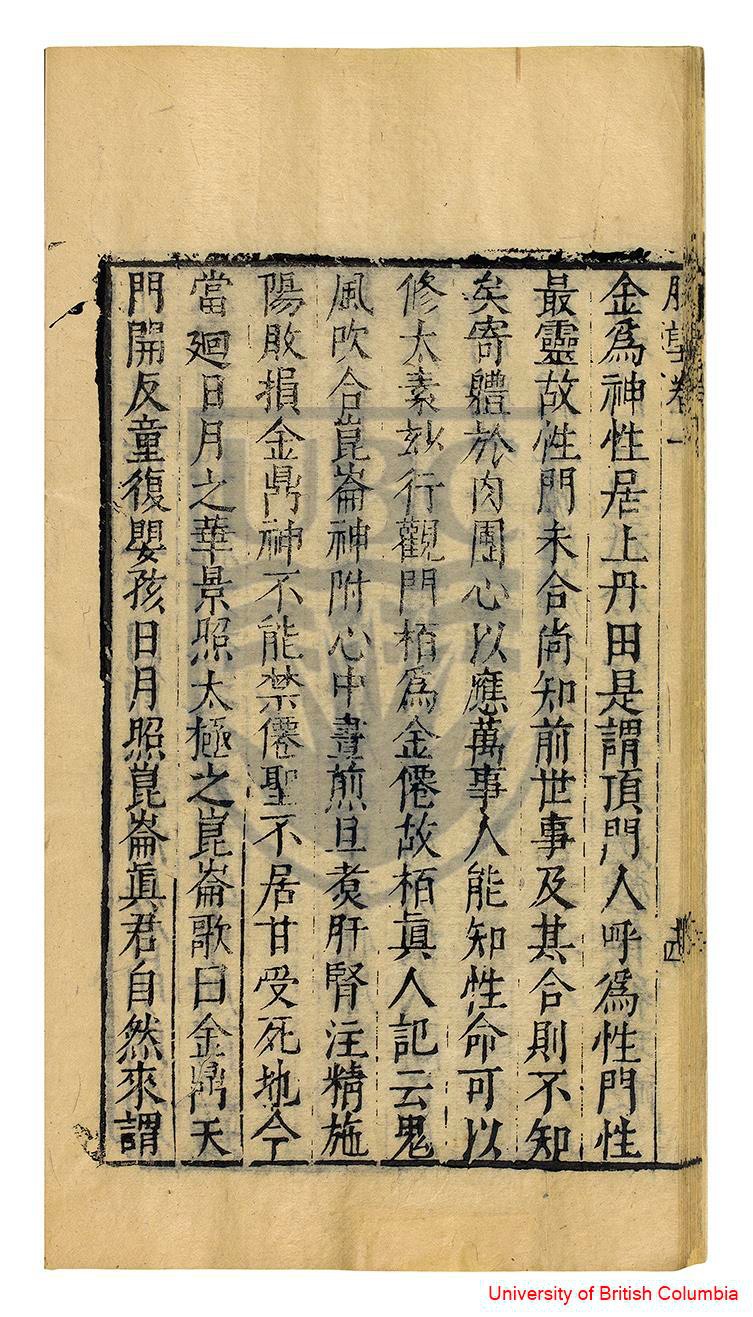 脉望卷一
金爲神性居上丹田是謂頂門人呼爲性門性
最靈故性門未合尚知前世事及其合則不知
矣寄體於肉團心以應萬事人能知性命可以
修太素玅行觀門栢爲金僊故栢眞人記云鬼
風吹合崑崙神附心中晝煎旦煑肝腎注精施
陽敗損金鼎神不能禁僊聖不居甘受死地今
當廻日月之華景照太極之崑崙歌曰金鼎天
門開反童復嬰孩日月照崑崙眞君自然來謂
四
UBC
University of British Columbia